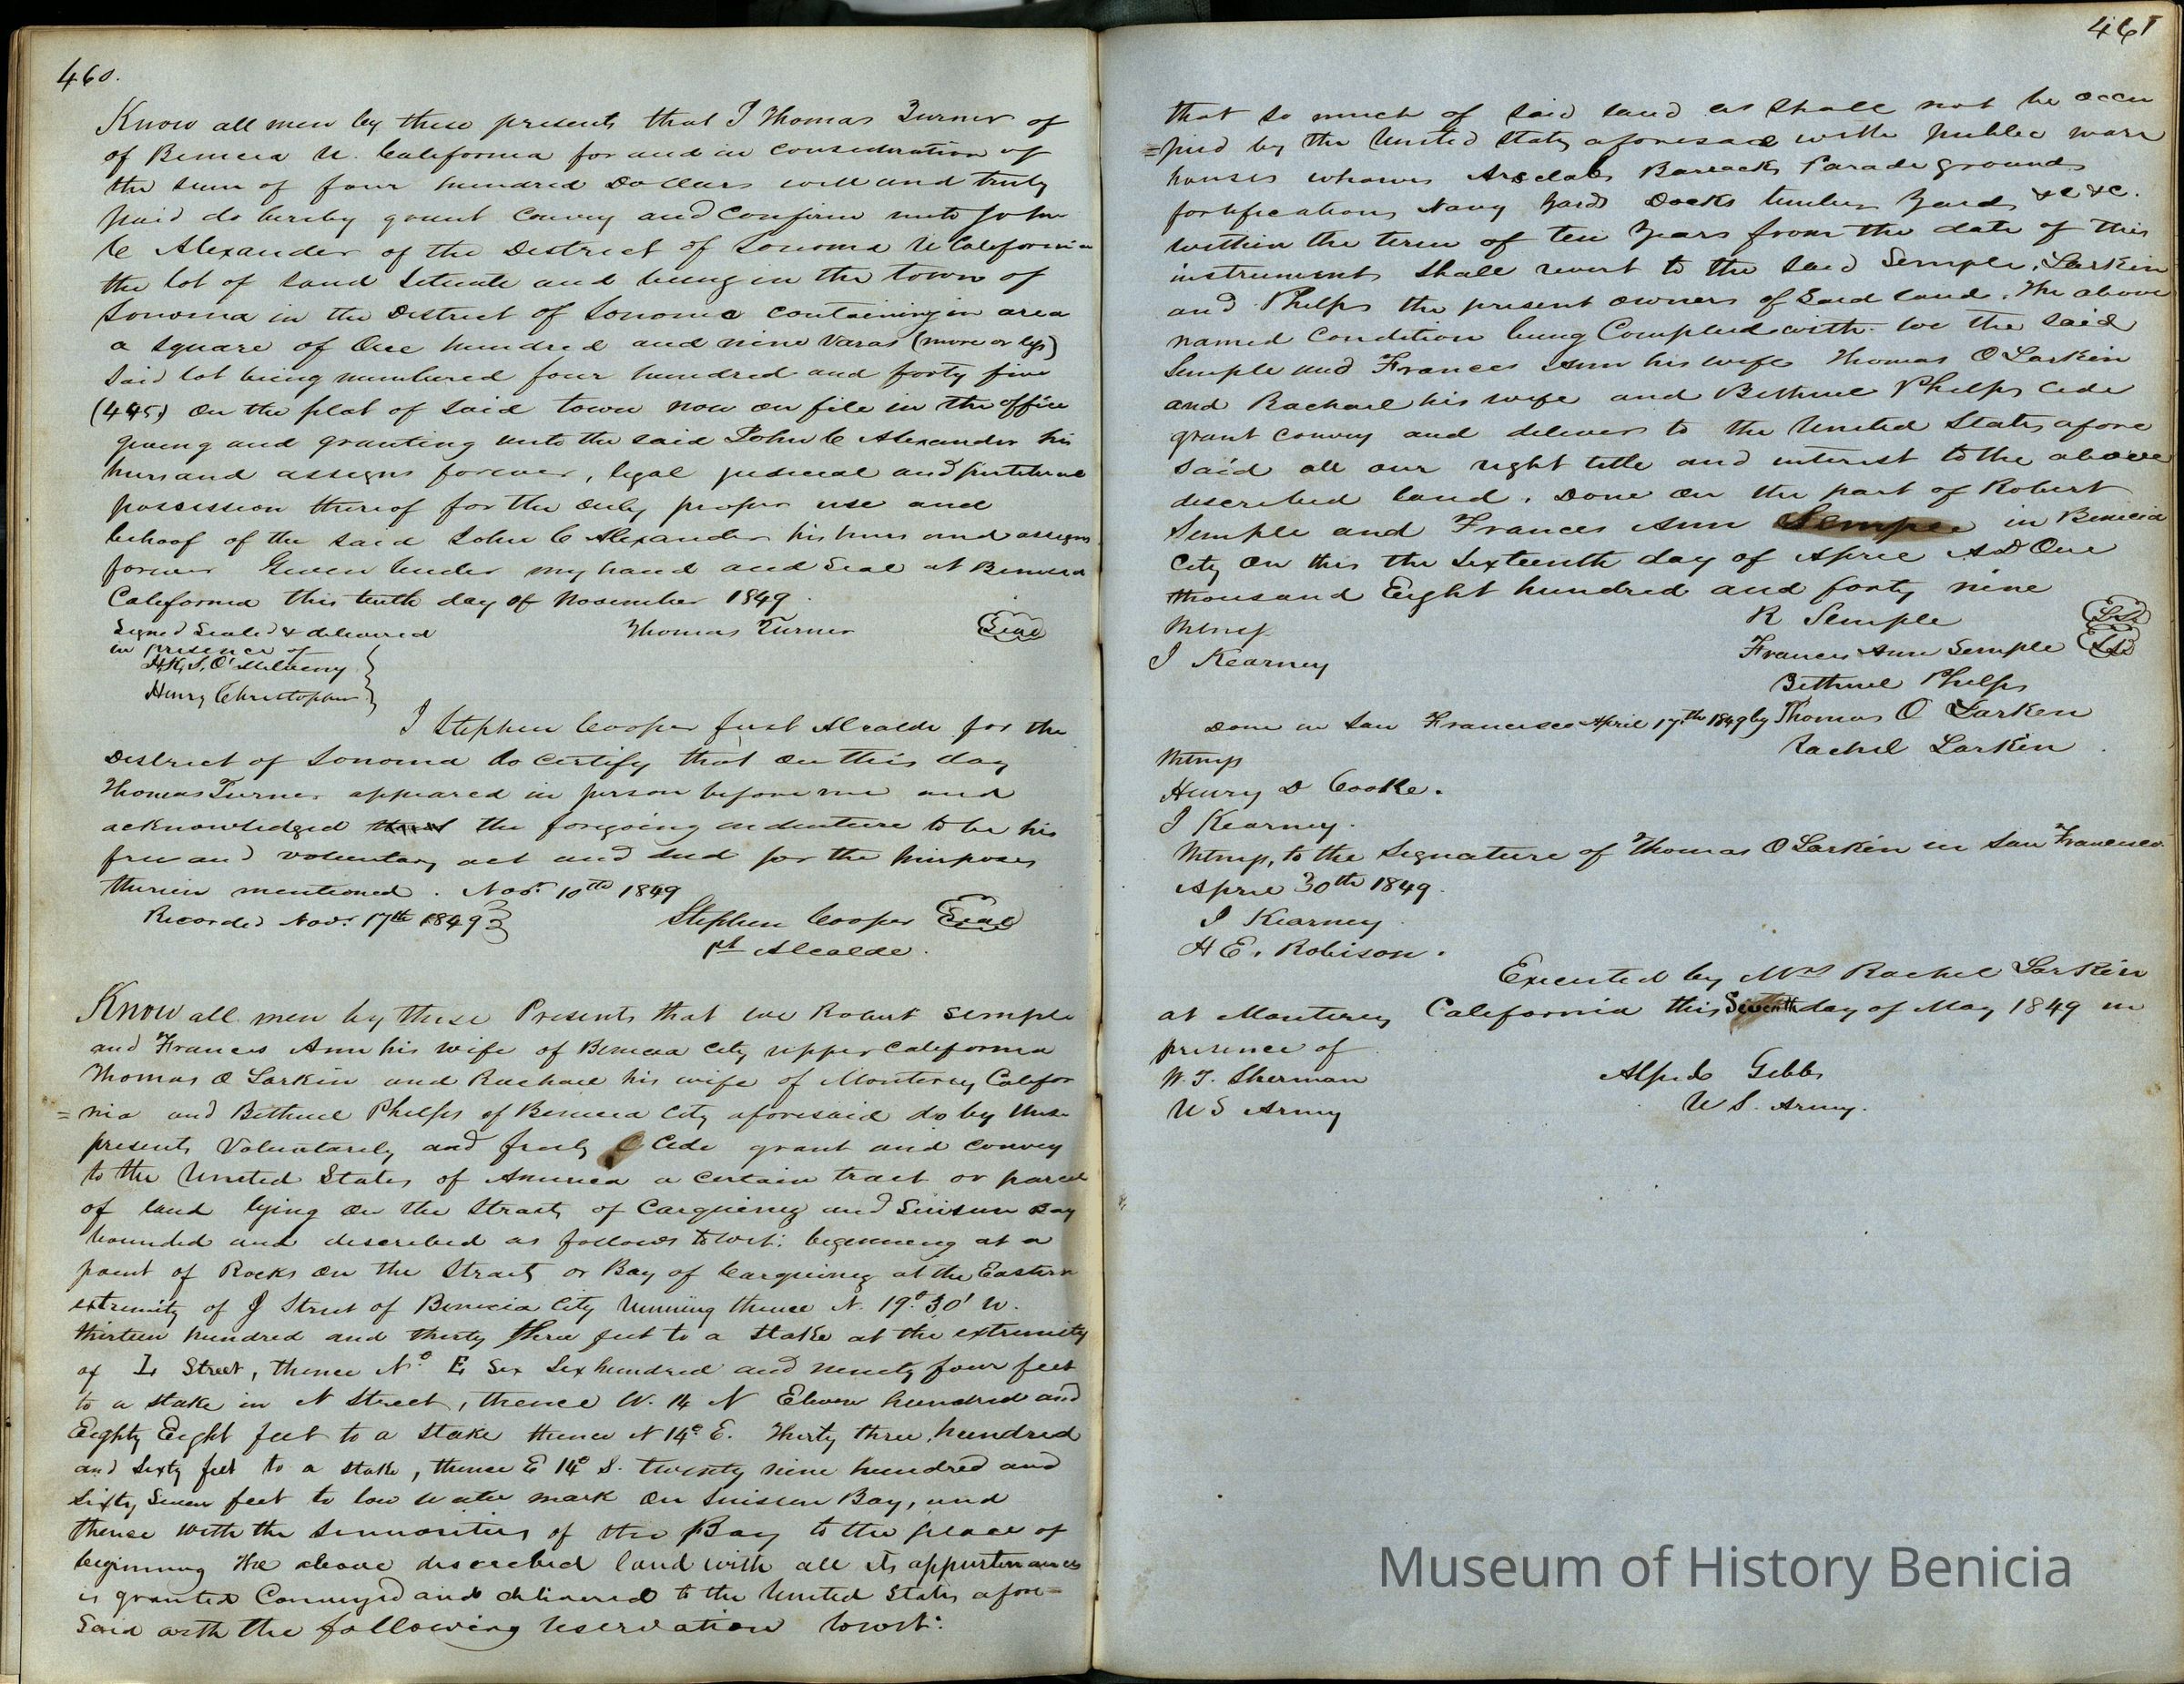 460.
Know all men by these presents that I Thomas Turner of
of Benicia U. California for and in consideration of
the sum of four hundred Dollars well and truly
paid do hereby grant convey and confirm unto John
C Alexander of the District of Sonoma U California
the lot of land Situate and being in the town of
Sonoma in the District of Sonoma containing in area
a square of One hundred and nine Varas (more or less)
said lot being numbered four hundred and forty five
(445) on the plat of said town now on file in the office
giving and granting unto the said John C Alexander his
heirs and assigns forever, legal judicial and
possession thereof for the only proper use and
behoof of the said John C Alexander his heirs and assigns
forever Given under my hand and Seal at Benicia
California this tenth day of November 1849.
Signed Sealed & delivered Thomas Turner Seal
in presence of
H.K.S. O'Melveny
Henry Christopher
I Stephen Cooper first Alcalde for the
District of Sonoma do certify that on this day
Thomas Turner appeared in person before me and
acknowledged the foregoing indenture to be his
free and voluntary act and deed for the purposes
therein mentioned. Novr. 10th 1849
Recorded Novr. 17th 1849 Stephen Cooper Seal
1st Alcalde.
Know all men by these Presents that we Robert Semple
and Frances Ann his wife of Benicia City upper California
Thomas O Larkin and Rachael his wife of Monterey Califor
=nia and Bethuel Phelps of Benicia City aforesaid do by these
presents Voluntarily and freely Cede grant and convey
to the United States of America a certain tract or parcel
of land lying on the Straits of Carquinez and Suisun Bay
bounded and described as follows towit: beginning at a
point of Rocks on the Straits or Bay of Carquinez at the Eastern
extremity of J Street of Benicia City running thence N. 19.° 30' W.
thirteen hundred and thirty three feet to a stake at the extremity
of L Street, thence N.° E Six Six hundred and ninety four feet
to a stake in N Street, thence W. 14 N Eleven hundred and
Eighty Eight feet to a stake thence N 14° E. Thirty three hundred
and Sixty feet to a stake, thence E 14° S. twenty nine hundred and
Sixty Seven feet to low water mark on Suisun Bay, and
thense with the sinuosities of the Bay to the place of
beginning The above described land with all its appurtenances
is granted Conveyed and delivered to the United States afore=
Said with the following reservation towit:
461
that so much of said land as shall not be occu
=pied by the United States aforesaid with public ware
houses wharves Arsclals Barracks Parade grounds
fortifications Navy Yards Docks timber Yards &c &c.
within the term of ten Years from the date of this
instrument shall revert to the said Semple, Larkin
and Phelps the present owners of said land. The above
named condition being Complied with. We the said
Semple and Frances Ann his wife Thomas O Larkin
and Rachael his wife and Bethuel Phelps cede
grant convey and deliver to the United States afore
said all our right title and interest to the above
described land. Done on the part of Robert
Semple and Frances Ann Semple in Benicia
City on this the Sixteenth day of April AD One
thousand Eight hundred and forty nine
Witness R Semple LS
J Kearney Frances Ann Semple LS
Bethuel Phelps
Done in San Francisco April 17th 1849 by Thomas O Larken
Rachel Larkin.
Witness
Henry D Cooke.
J Kearney.
Witness, to the Signature of Thomas O Larkin in San Francisco
April 30th 1849.
J Kearney
H E. Robison.
Executed by Mrs Rachel Larkin
at Monterey California this Seventh day of May 1849 in
presence of
W. T. Sherman Alfred Gibbs
U S Army U S. Army.
Museum of History Benicia